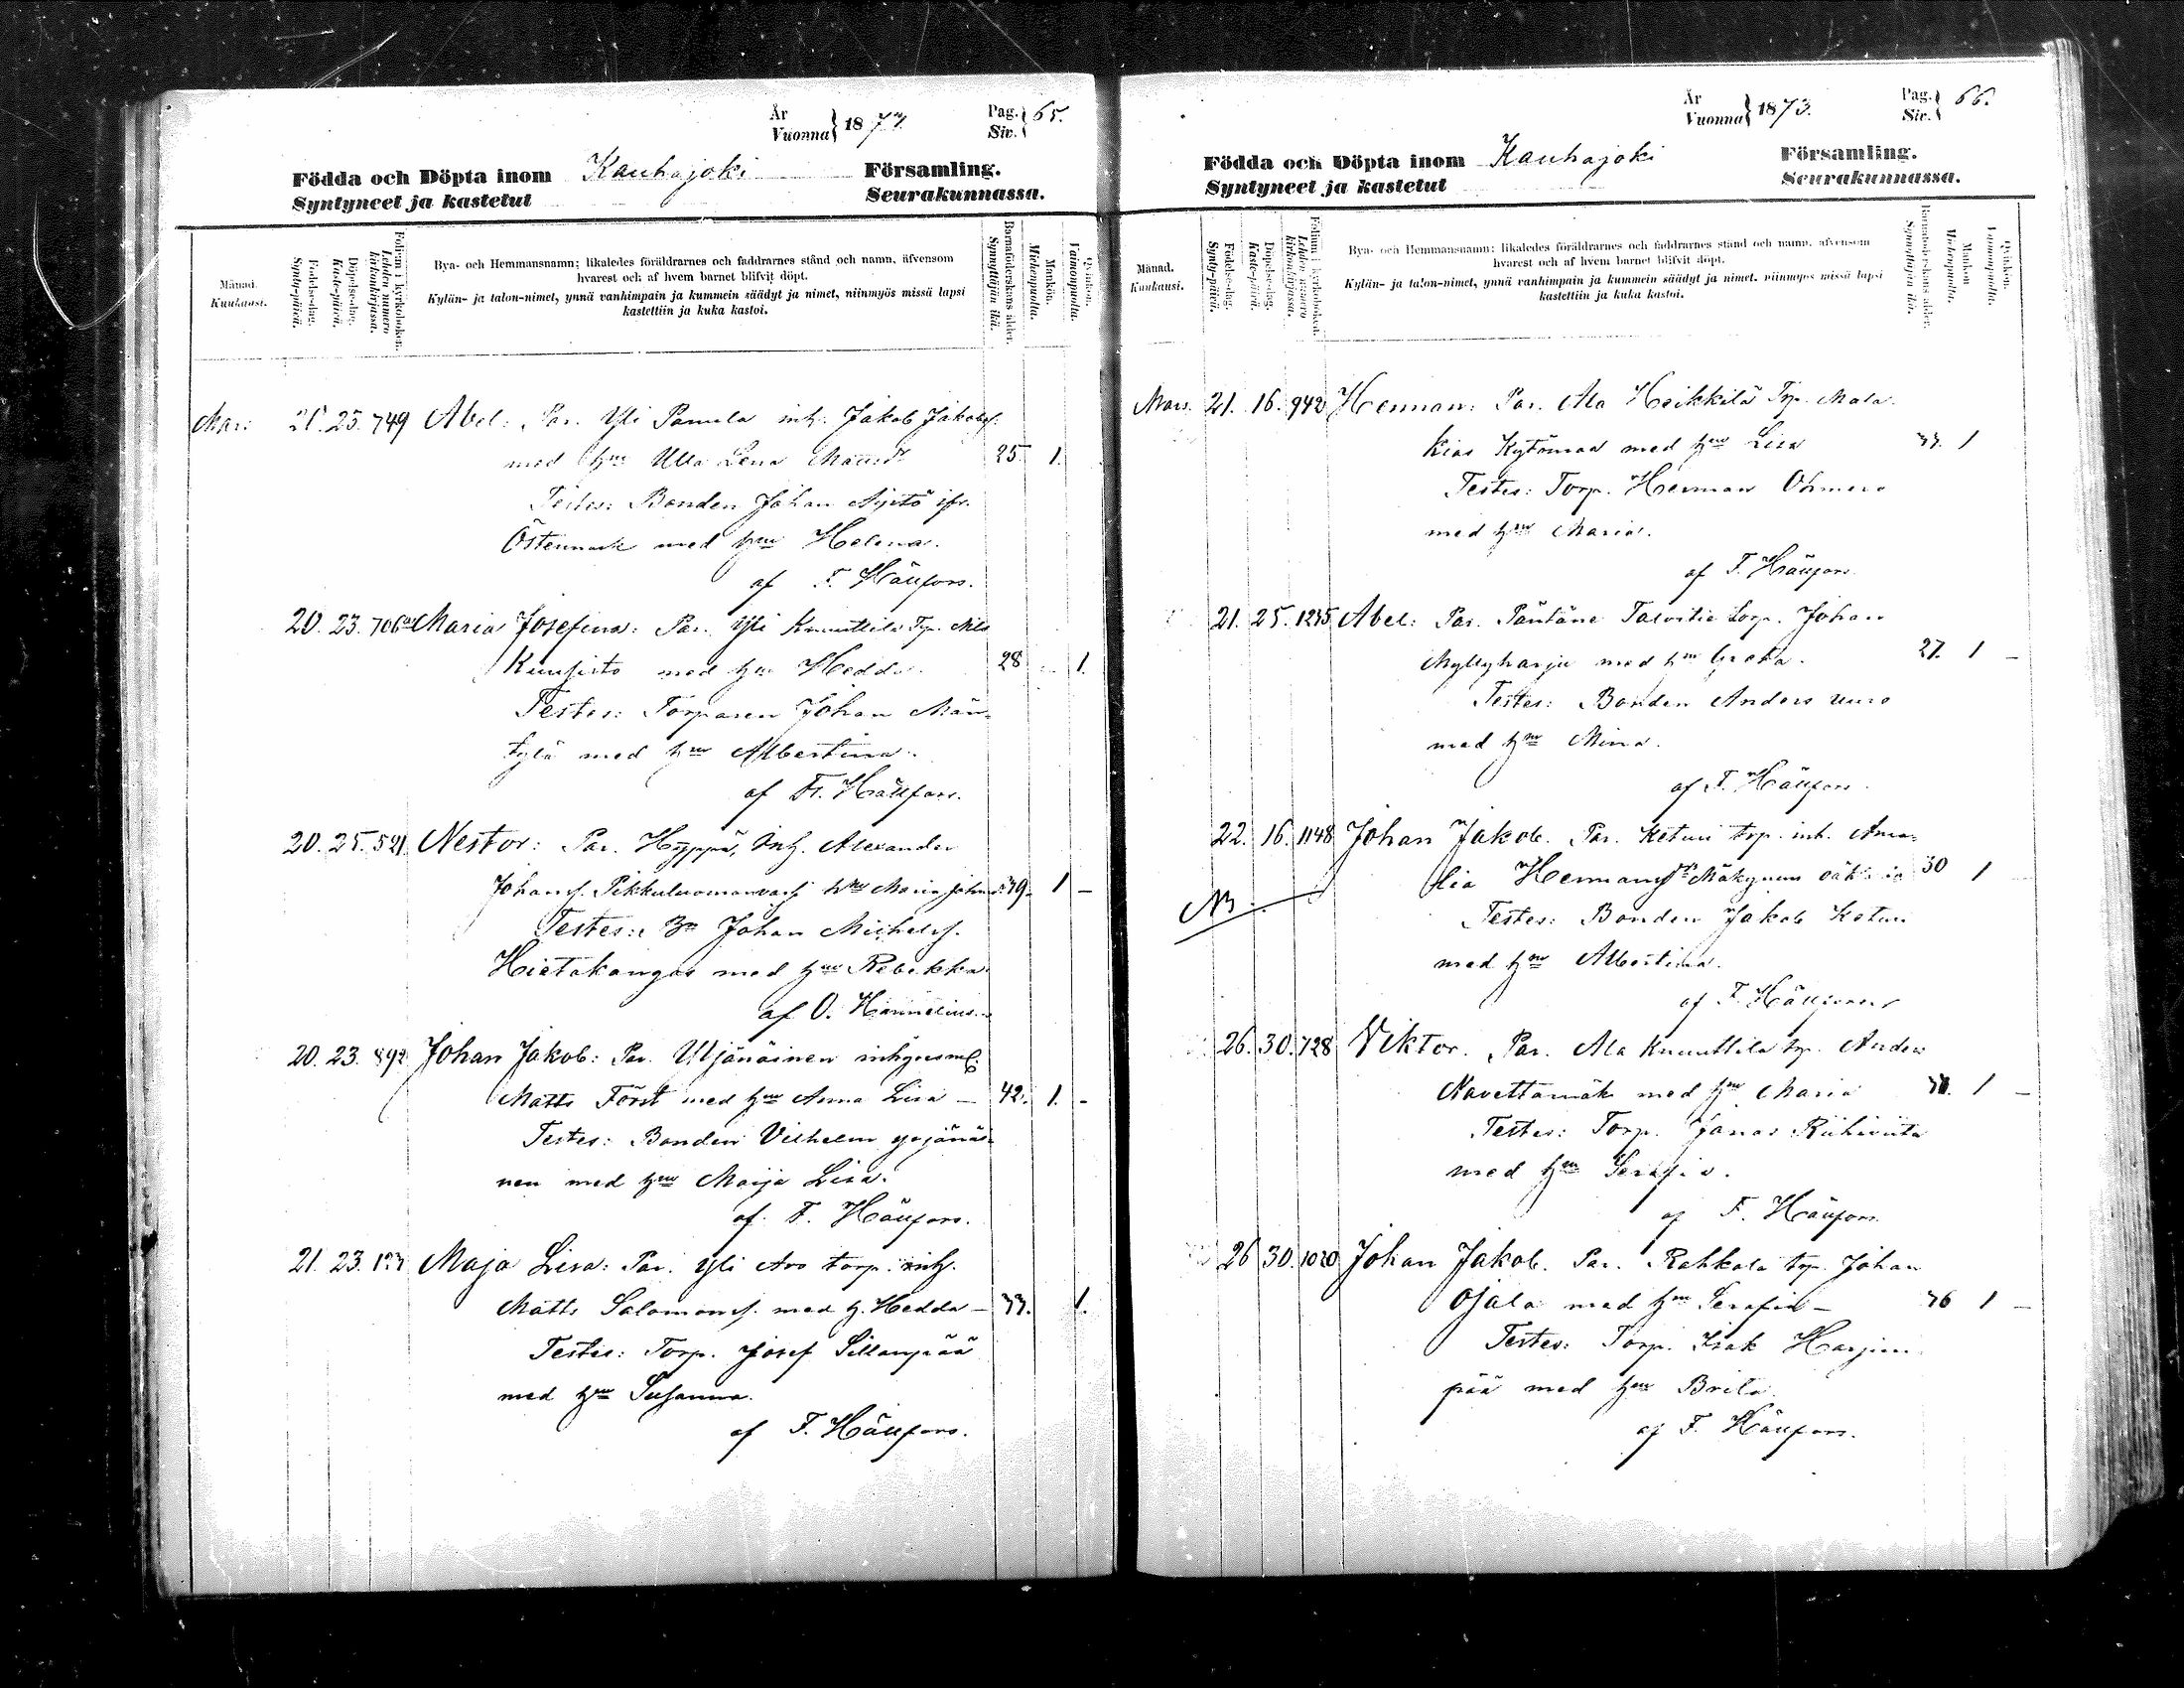 År
Vuonna 1873.
Pag.
Siv. 65.
Födda och Döpta inom Kauhajoki Församling.
Syntyneet ja kastetut Seurakunnassa.
Månad.
Kuukausi.
Födelsedag.
Synty-päivä.
Döpelsedag.
Kaste-päivä.
Folium i kyrkoboken.
Lehden numero kirkonkirjassa.
Bya- och Hemmansnamn; likaledes föräldrarnes och faddrarnes stånd och namn, äfvensom
hvarest och af hvem barnet blifvit döpt.
Kylän- ja talon-nimet, ynnä vanhimpain ja kummein säädyt ja nimet, niinmyös missä lapsi
kastettiin ja kuka kastoi.
Barnaföderskans ålder.
Synnyttäjän ikä.
Mankön.
Miehenpuolta.
Qvinkön.
Vaimonpuolta.
Mars 25. 749 Abel: Par. Yli Pamila inh. Jakob Jakobss.
med hu Ulla Lena Mattsdr 25. 1.
Testes: Bonden Johan Äijälö ifr.
Östermark med hu Helena.
af F. Hällfors.
20. 23. 706 Maria Josefina: Par. Yli Knuuttila Trp. Nils
Kuusisto med hu Hedda. 28 1.
Testes: Torparen Johan Män-
tylä med hu Albertina.
af Fr. Hällfors.
20. 25. 521 Nestor: Par. Hyppä, Inh. Alexander
Johanss. Pikkuluoman hu Maria 39. 1 -
Testes: Johan Michelss.
Hietakangas med hu Rebekka
af O. Hannelius.
20. 23. 892 Johan Jakob: Par. Yljänäinen inhysm.
Matts Först med hu Anna Lisa - 42. 1. -
Testes: Bonden Vilhelm yljänäi-
nen med hu Maija Lisa.
af F. Hällfors.
21. 23. Maja Lisa: Par. Yli Aro torp. inh.
Matts Salomonss. med h. Hedda - 33. 1.
Testes: Torp. Josef Sillanpää
med hu Susanna.
af F. Hällfors.
År
Vuonna 1873.
Pag.
Siv. 66.
Födda och Döpta inom Kauhajoki Församling.
Syntyneet ja kastetut Seurakunnassa.
Månad.
Kuukausi.
Födelsedag.
Synty-päivä.
Döpelsedag.
Kaste-päivä.
Folium i kyrkoboken.
Lehden numero kirkonkirjassa.
Bya- och Hemmansnamn; likaledes föräldrarnes och faddrarnes stånd och namn, äfvensom
hvarest och af hvem barnet blifvit döpt.
Kylän- ja talon-nimet, ynnä vanhimpain ja kummein säädyt ja nimet, niinmyös missä lapsi
kastettiin ja kuka kastoi.
Barnaföderskans ålder.
Synnyttäjän ikä.
Mankön.
Miehenpuolta.
Qvinkön.
Vaimonpuolta.
Mars 21. 16. 942 Herman: Par. Ala Heikkilä Trp. Mala-
kias Kytömaa med hu Lisa 33. 1
Testes: Torp. Herman
med hu Maria.
af F. Hällfors.
21. 25. 1235 Abel: Par. Päntäne Talvitie torp. Johan
Myllyharju med hu Greta. 27. 1 -
Testes: Bonden Anders uuro
med hu Mina.
af F. Hällfors.
22. 16. 1148 Johan Jakob. Par. Keturi trp. inh. Ama-
lia Hermansdr Mäkynen oäkta 30 1
NB
Testes: Bonden Jakob Keturi
med hu Albertina.
af F. Hällfors
26. 30. 728 Viktor. Par. Ala Knuuttila trp. Anders
Navettamäk med hu Maria 1 -
Testes: Torp. Jonas Riihiviita
med hu Serafia.
af F. Hällfors.
26 30. 1020 Johan Jakob. Par. Rahkola trp. Johan
Ojala med hu Serafia - 36 1 -
Testes: Torp. Isak Harjun-
pää med hu Brita
af F. Hällfors.